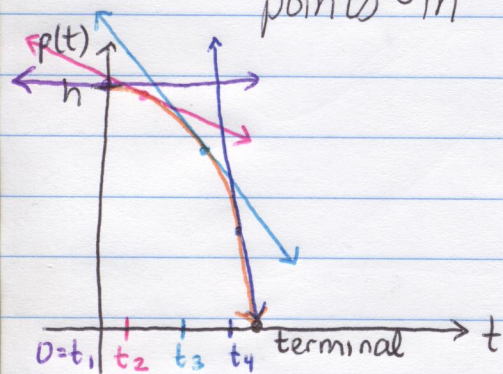 points in
p(t)
h
0=t₁ t₂ t₃ t₄ terminal t